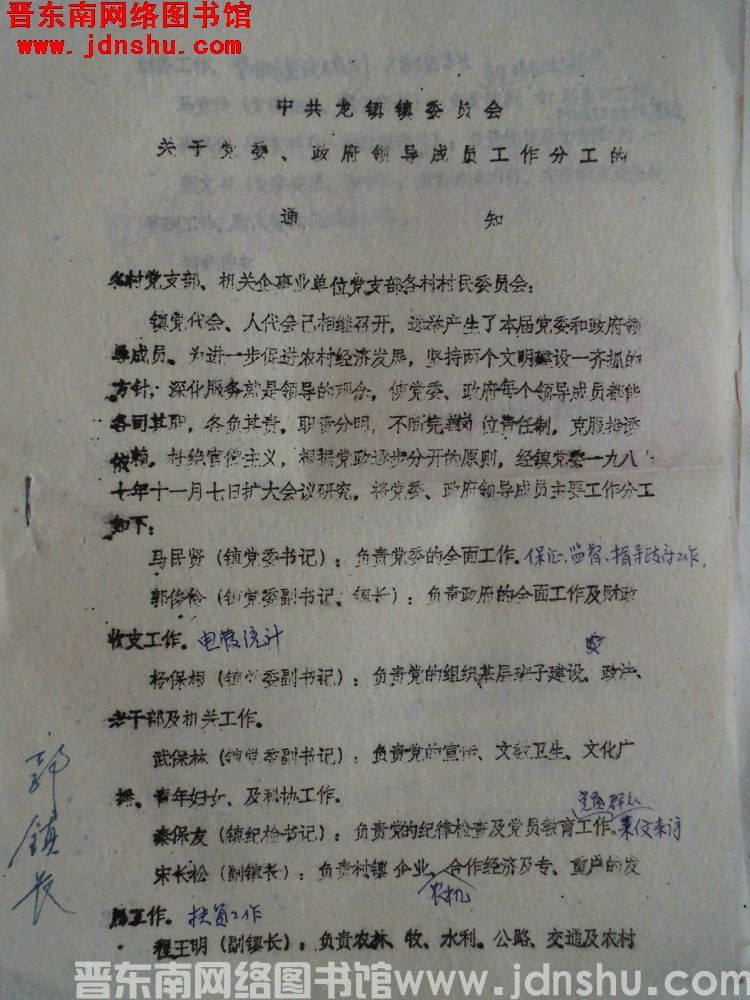 晋东南网络图书馆
www.jdnshu.com
中共龙镇镇委员会
关于党委、政府领导成员工作分工的
通知
各村党支部、机关企事业单位党支部各村村民委员会：
镇党代会、人代会已相继召开，选举产生了本届党委和政府领
导成员。为进一步促进农村经济发展，坚持两个文明建设一齐抓的
方针，深化服务就是领导的观念，使党委、政府每个领导成员都能
各司其职，各负其责。职责分明，不断完善岗位责任制，克服推诿
依赖。杜绝官僚主义，根据党政逐步分开的原则，经镇党委一九八
七年十一月七日扩大会议研究，将党委、政府领导成员主要工作分工
如下：
马民贤（镇党委书记）：负责党委的全面工作。保证、监督、指导政府工作，
郭俊伶（镇党委副书记、镇长）：负责政府的全面工作及财政
收支工作。电管统计
杨保根（镇党委副书记）：负责党的组织基层班子建设、政法、
老干部及机关工作。
武保林（镇党委副书记）：负责党的宣传、文教卫生、文化广
播、青年妇女、及科协工作。
秦保友（镇纪检书记）：负责党的纪律检查及党员教育工作。党员群众来信来访
宋长松（副镇长）：负责村镇企业、农机合作经济及专、重户的发
展工作。扶贫工作
程王明（副镇长）：负责农林、牧、水利。公路、交通及农村
郭镇长
晋东南网络图书馆www.jdnshu.com